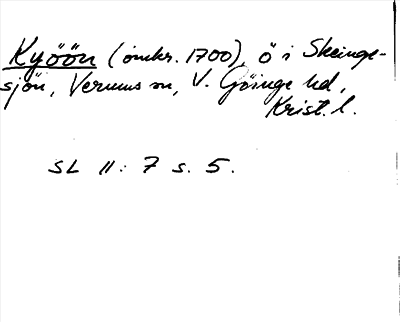 Kyöön (omkr. 1700), ö i Skeinge-
sjön, Verums sn, V. Göinge hd,
Krist. l.
SL II: 7 s. 5.